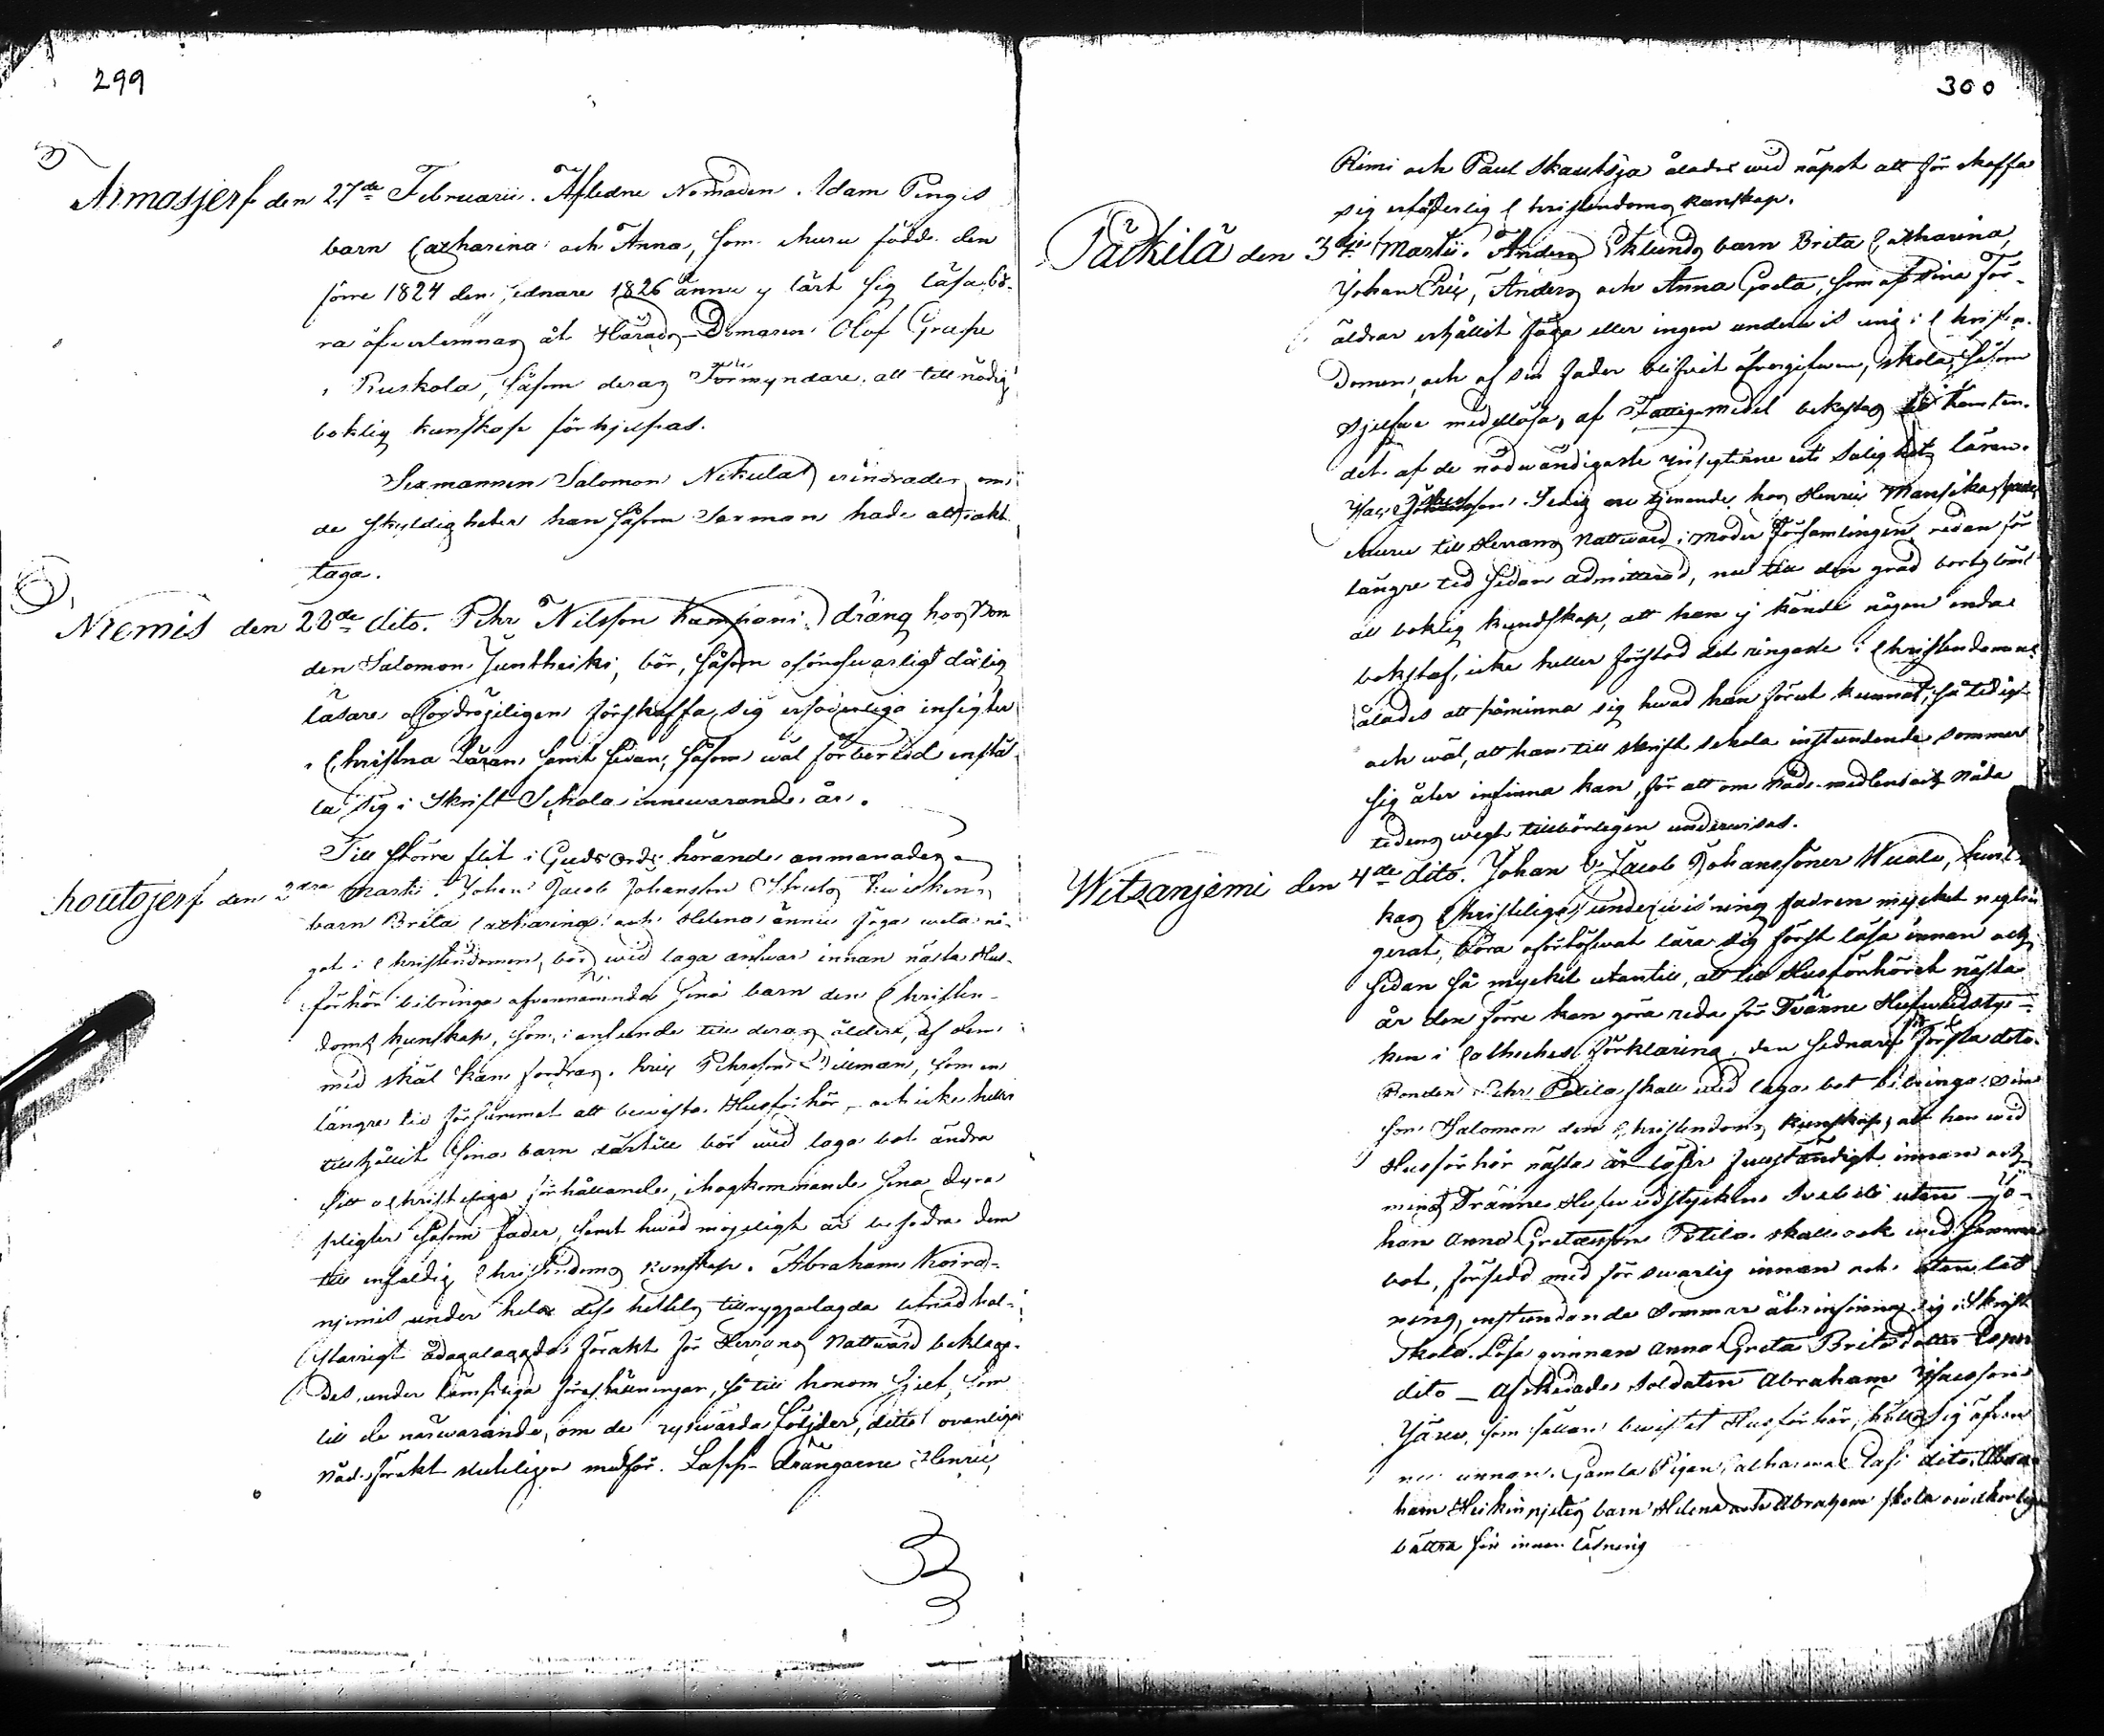 299
Armasjerf den 27de Februarii. Afledne Nomaden Adam Pingis
barn Catharina och Anna, som churu född den
förre 1824 den sednare 1826 ännu ej lärt sig läsa, bö-
ra öfverlemnas åt Härads-Domaren Olof Grape
i Ruskola, såsom deras Förmyndare, att till nödig
boklig kunskap förhjelpas.
Sexmannen Salomon Nikulas erindrades om
de skyldigheter han såsom Sexman hade att iakt-
taga.
Niemis den 28de dito. Pehr Nilsson dräng hos Bon
den Salomon Juntheiki, bör, såsom oförsvarligt dålig
läsare ofördröjeligen förskaffa sig erforderliga insigter
i Christna Läran, samt sedan, såsom wäl förberedd instäl-
la sig i Skrift Schola innewarande år.
Till större flit i Guds Ords hörande anmanades
Koutojerf den 2dra Martii. Johan Jacob Johansson
barn Brita Catharina och Helena ännu föga weta nå-
got i Christendomen, bör wid laga answar innan nästa Hus-
förhör bibringa ofvannämnda sina barn den Christen-
doms kunskap, som, i anseende till deras ålder, af dem
med skäl kan fordras. Eric Pehrsson, som en
längre tid försummat att bewista Husförhör, och icke heller
tillhållit sina barn därtill bör wid laga bot ändra
sitt ochristeliga förhållande, ihogkommande sina dyra
pligter såsom fader, samt hwad möjeligt är befodra dem
till enfaldig Christendoms kunskap. Abraham Koira-
njemis under hela dess hittils tillryggalagda lefnad hal-
starrigt ådagalagda förakt för Herrans Nattward beklaga-
des, under lämpliga föreställningar, så till honom sjelf, som
till de närwarande, om de ryswärda följder, detta ovanliga
Nåd.förakt medför. Lapp-drängarne Henric
300
Rimi och Paul Skautsja ålades wid näpst att för skaffa
sig erforderlig Christendoms kunskap.
Päckilä den 3die Martii. Anders Eklunds barn Brita Catharina,
Johan Eric, Anders och Anna Greta, som af Sina För-
äldrar erhållit föga eller ingen underwisning i Christen-
domen, och af sin fader blifvit öfvergifwen, skola, såsom
sjelfwe medellösa, af Fattigmedel bekostas till
det af de nödwändigaste insigterne uti Salighets läran.
Isac tjenande hos Henric
churu till Herrans Nattward i moder församlingen redan för
längre tid sedan admitterad, nu till den grad bortglömt
all boklig kundskap, att han ej kände någon enda
bokstaf, icke heller förstod det ringaste i Christendomen,
ålades att påminna sig hwad han förut kunnat, så tidigt
och wäl, att han till skrift schola instundande sommar
sig åter infinna kan, för att om Nåde-medlens och Nåde
tidens wigt tillbörligen underwisas.
Witsanjemi den 4de dito. Johan & Jacob Johanssöner Wuolo, hwil-
kas Christeliga underwisning fadren mycket negli-
gerat, böra oförtöfwat lära sig först läsa innan och
sedan så mycket utantill, att till Husförhöret nästa
år den förre kan göra reda för Tvänne Hufwudstyc-
ken i Catheches förklaring, den sednare för första dito.
Bonden Pehr Potila skall wid laga bot bibringa sin
son Salomon den Christendoms kunskap, att han wid
Husförhör nästa år läser fullständigt innan och
minst Tvänne Hufwudstycken Svebili utan. Jo-
han Anna Gretasson Potila skall ock wid samma
bot, försedd med försvarlig innan och utan läs-
ning, instundande Sommar åter infinna sig i Skrift
Skola. Lösa qvinnan Anna Greta Brita dotter
dito — Afskedade Soldaten Abraham Isacsson
Järw, som sällan bewistat Husförhör, håller sig äfven
innan. Gamla Pigan Catharina dito. Abra-
ham barn Helena och Abraham skola
bättra sin innan läsning